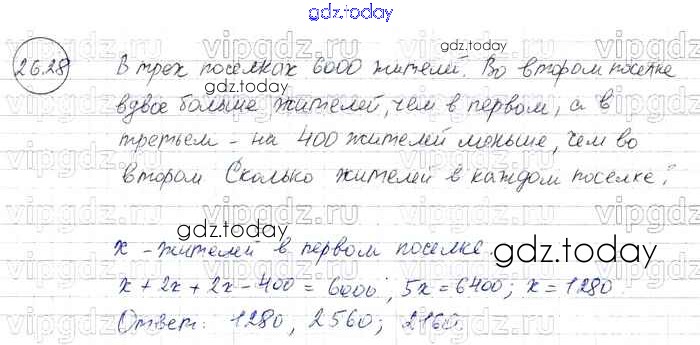 gdz.today
26.28
В трех поселках 6000 жителей. Во втором поселке
вдвое больше жителей, чем в первом, а в
третьем - на 400 жителей меньше, чем во
втором Сколько жителей в каждом поселке?
x - жителей в первом поселке.
x + 2x + 2x - 400 = 6000; 5x = 6400; x = 1280
Ответ: 1280, 2560; 2160.
gdz.today
gdz.today
gdz.today
gdz.today
vipgdz.ru